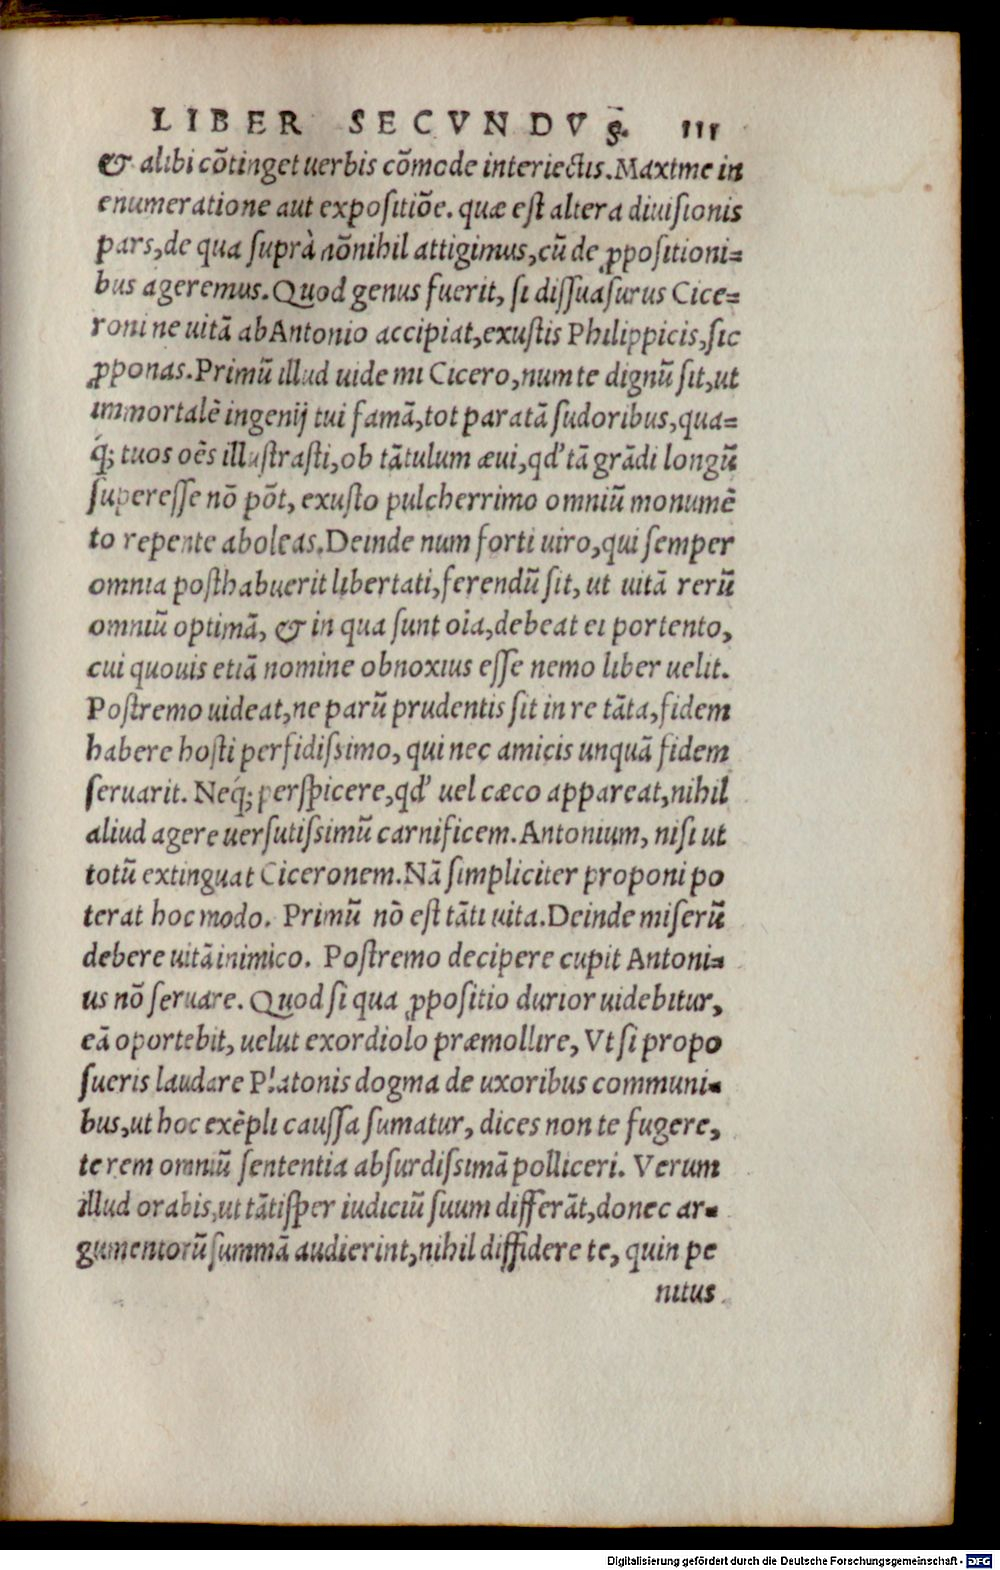 LIBER SECVNDVS. 111
& alibi cōtinget uerbis cōmode interiectis. Maxime in
enumeratione aut expositiōe. quæ est altera diuisionis
pars, de qua suprà nōnihil attigimus, cū de ꝓpositioni=
bus ageremus. Quod genus fuerit, si dissuasurus Cice=
roni ne uitā ab Antonio accipiat, exustis Philippicis, sic
ꝓponas. Primū illud uide mi Cicero, num te dignū sit, ut
immortalē ingenij tui famā, tot paratā sudoribus, qua=
q́; tuos oēs illustrasti, ob tātulum æui, qd' tā grādi longū
superesse nō pōt, exusto pulcherrimo omniū monumē
to repente aboleas. Deinde num forti uiro, qui semper
omnia posthabuerit libertati, ferendū sit, ut uitā rerū
omniū optimā, & in qua sunt oīa, debeat ei portento,
cui quouis etiā nomine obnoxius esse nemo liber uelit.
Postremo uideat, ne parū prudentis sit in re tāta, fidem
habere hosti perfidissimo, qui nec amicis unquā fidem
seruarit. Neq́; perspicere, qd' uel cæco appareat, nihil
aliud agere uersutissimū carnificem. Antonium, nisi ut
totū extinguat Ciceronem. Nā simpliciter proponi po
terat hoc modo. Primū nō est tāti uita. Deinde miserū
debere uitā inimico. Postremo decipere cupit Antoni=
us nō seruare. Quod si qua ꝓpositio durior uidebitur,
eā oportebit, uelut exordiolo præmollire, Vt si propo
sueris laudare Platonis dogma de uxoribus communi=
bus, ut hoc exēpli caussa sumatur, dices non te fugere,
te rem omniū sententia absurdissimā polliceri. Verum
illud orabis, ut tātisper iudiciū suum differāt, donec ar=
gumentorū summā audierint, nihil diffidere te, quin pe
nitus
Digitalisierung gefördert durch die Deutsche Forschungsgemeinschaft - DFG